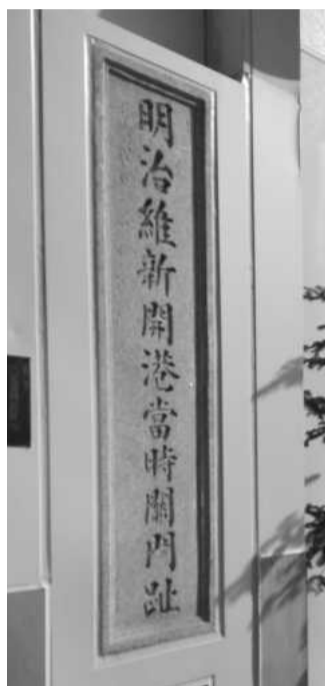 明治維新開港當時關門趾